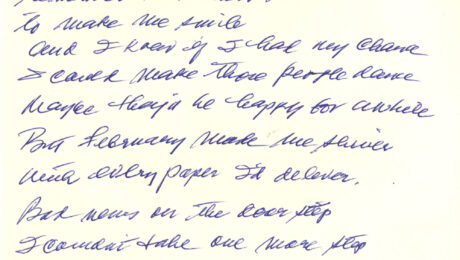 to make me smile
And I knew if I had my chance
I could make those people dance
Maybe they'd be happy for awhile
But February made me shiver
With every paper I'd deliver.
Bad news on the door step
I couldn't take one more step